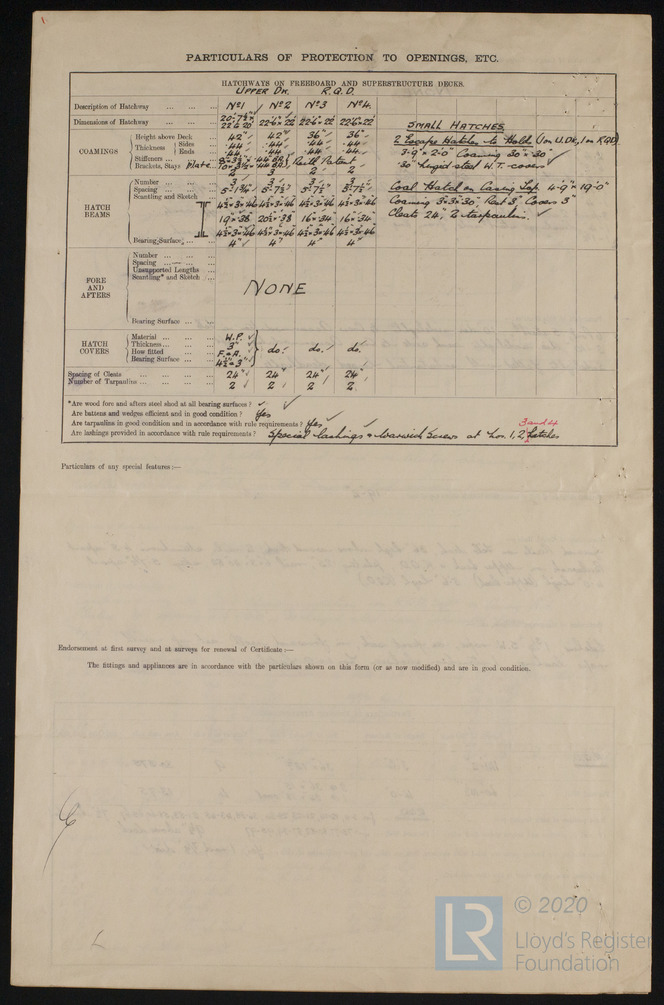 PARTICULARS OF PROTECTION TO OPENINGS, ETC.
HATCHWAYS ON FREEBOARD AND SUPERSTRUCTURE DECKS.
UPPER DK. R.Q.D.
Description of Hatchway ... ... ... No1 No2 No3 No4.
Dimensions of Hatchway ... ... 22'6" x 22' 22'6" x 22' 22'6" x 22'
COAMINGS
Height above Deck ... 42" 42" 36" 36"
Thickness Sides ... .44 .44 .44 .44
Ends ... .44 .44 .44 .44
Stiffeners ...
Brackets, Stays Plate 2 3 2 2
HATCH BEAMS
Number ... 3 3 3 3
Spacing ... 5'-7½" 5'-7½" 5'-7½"
Scantling and Sketch ... 4½"x3"x.46 4½"x3"x.46 4½"x3"x.46 4½"x3"x.46
19"x.38 20½"x.38 16"x.34 16"x.34
4½"x3"x.46 4½"x3"x.46 4½"x3"x.46 4½"x3"x.46
Bearing Surface ... 4" 4" 4" 4"
SMALL HATCHES
2 Escape Hatches to Holds (1 on U.DK, 1 on RQD)
3'-9" x 2'-0" Coaming 30" x .30"
.30" hinged steel W.T. covers
Coal Hatch on Casing Top 4'-9" x 19'-0"
Coaming 3"x3"x.30", Rest 3" Covers 3"
Cleats 24", 2 tarpaulins.
FORE AND AFTERS
Number ...
Spacing ...
Unsupported Lengths ...
Scantling* and Sketch ...
NONE
Bearing Surface ... ...
HATCH COVERS
Material ... ... W.P.
Thickness ... ... 3" do. do. do.
How fitted ... F. & A.
Bearing Surface ... 4½" & 3"
Spacing of Cleats ... ... ... 24" 24" 24" 24"
Number of Tarpaulins ... ... ... 2 2 2 2
*Are wood fore and afters steel shod at all bearing surfaces?
Are battens and wedges efficient and in good condition? Yes
Are tarpaulins in good condition and in accordance with rule requirements? Yes
3 and 4
Are lashings provided in accordance with rule requirements? Special lashings & Warwick Screws at Nos. 1, 2 hatches
Particulars of any special features:—
Endorsement at first survey and at surveys for renewal of Certificate:—
The fittings and appliances are in accordance with the particulars shown on this form (or as now modified) and are in good condition.
LR
© 2020
Lloyd's Register
Foundation